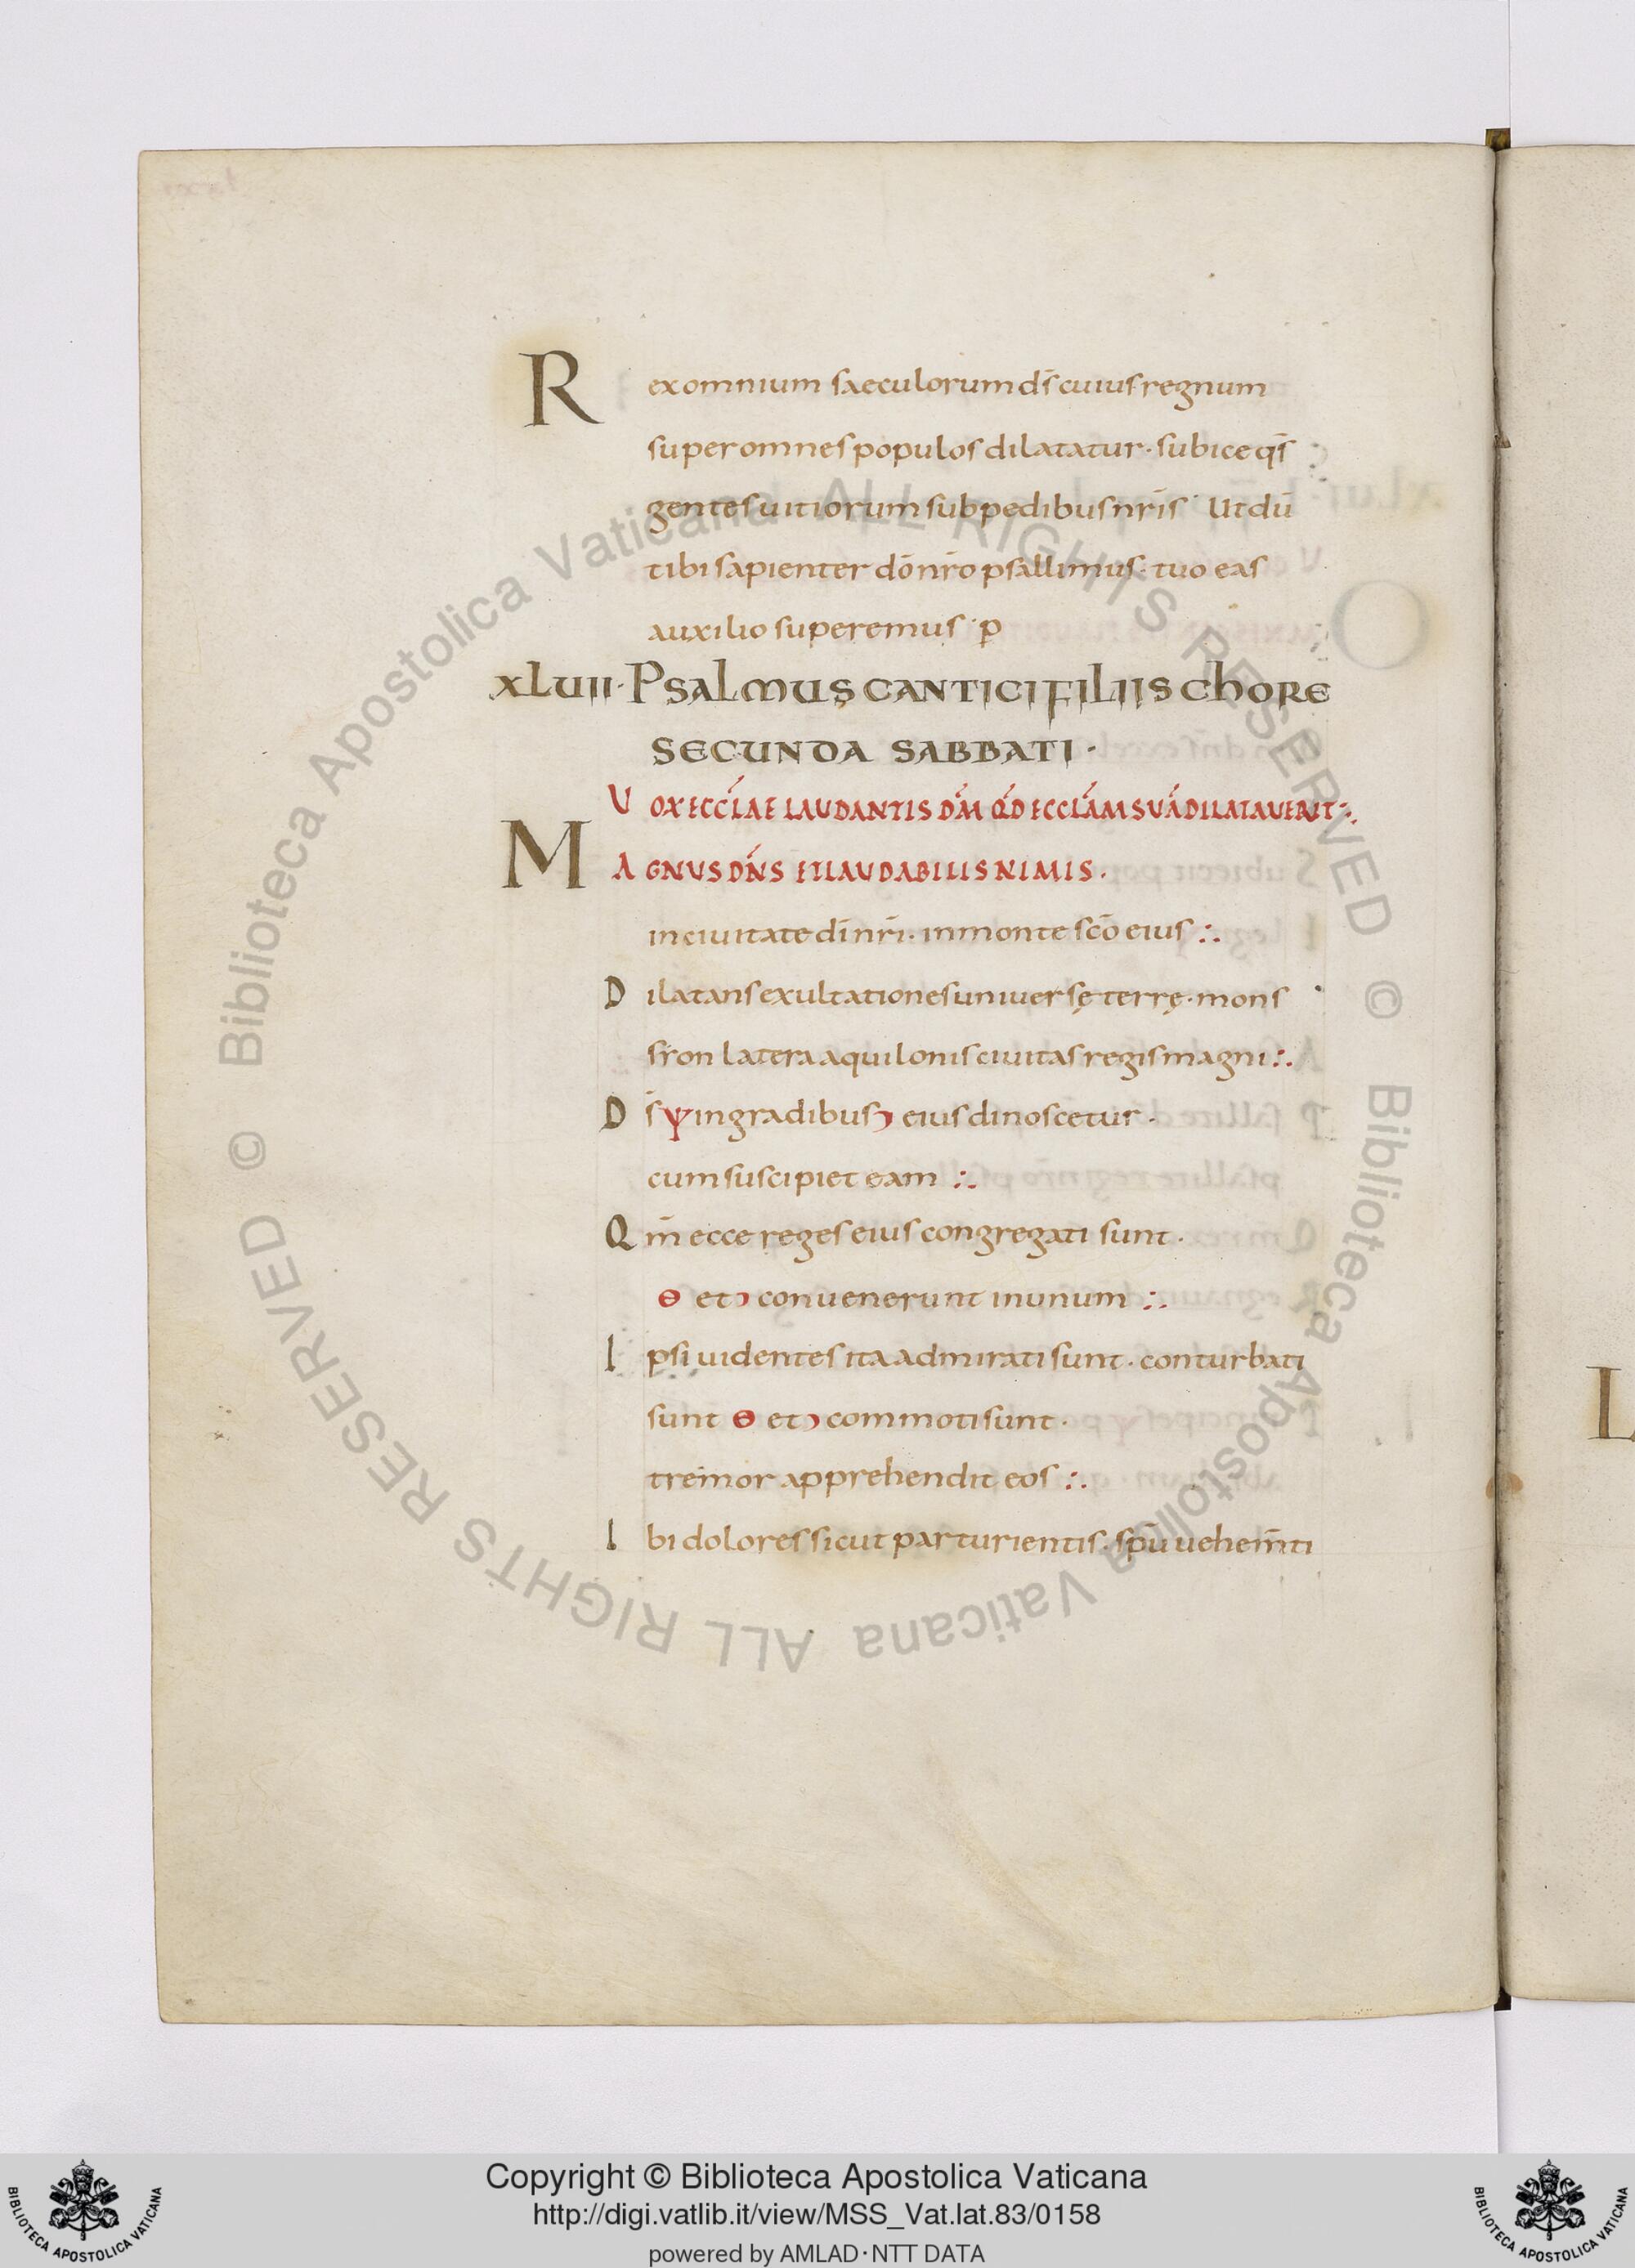 Rex omnium saeculorum ds̄ cuius regnum
super omnes populos dilatatur · subice qs̄
gentes uitiorum sub pedibus nr̄is · Ut dū
tibi sapienter dō nr̄o psallimus · tuo eas
auxilio superemus · p
xLuii · Psalmus canticifiliis chore
secunda sabbati ·
Uox eccl̄ae laudantis dm̄ qd̄ eccl̄am suā dilatauerit :·
Magnus dn̄s et laudabilis nimis ·
in ciuitate dī nr̄i · in monte sc̄o eius :·
Dilatans exultationes uniuersę terrę · mons
sr̄on latera aquilonis ciuitas regis magni :·
Ds̄ ψ in gradibus ͻ eius dinoscetur ·
cum suscipiet eam :·
Qm̄ ecce reges eius congregati sunt ·
ɵ et ͻ conuenerunt in unum :·
Ipsi uidentes ita admirati sunt · conturbati
sunt ɵ et ͻ commoti sunt ·
tremor apprehendit eos :·
Ibi dolores sicut parturientis · spū uehem̄ti
© Biblioteca Apostolica Vaticana ALL RIGHTS RESERVED
© Biblioteca Apostolica Vaticana ALL RIGHTS RESERVED
BIBLIOTECA APOSTOLICA VATICANA
Copyright © Biblioteca Apostolica Vaticana
http://digi.vatlib.it/view/MSS_Vat.lat.83/0158
powered by AMLAD·NTT DATA
BIBLIOTECA APOSTOLICA VATICANA